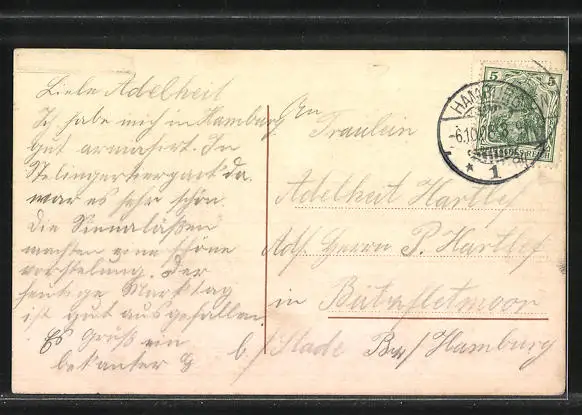 Liebe Adelheit
Ich habe mich in Hamburg
gut armasirt. In
Stelingertierpark da
war es sehr schön
die
machten eine schöne
vorstelung. Der
heutige Marktag
ist gut ausgefallen
Es Grüß ein
bekanter
An
Fräulein
Adelheit Hartlef
Adr. Herrn P. Hartlef
in Bützfletmoor
b/Stade Bez/Hamburg
5 5
HAMBURG
6.10.
* 1